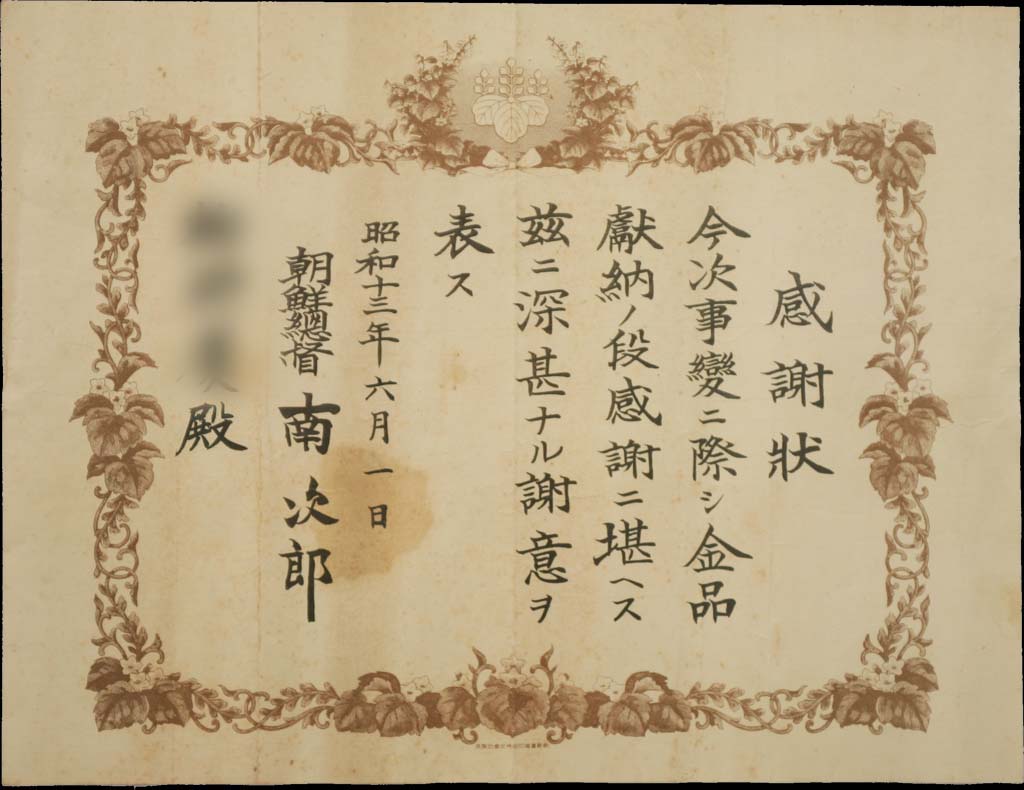 感謝狀
今次事變ニ際シ金品
獻納ノ段感謝ニ堪ヘス
玆ニ深甚ナル謝意ヲ
表ス
昭和十三年六月一日
朝鮮總督 南次郎
殿